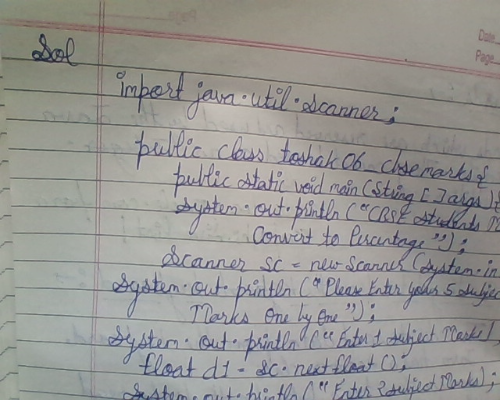 Date
Page
Sol
import java.util.scanner;
public class toshak06_cbsemarks{
public static void main (string []args){
system.out.println ("CBSE students M
Convert to Percentage");
Scanner sc = new scanner (system.in
system.out.println ("Please Enter your 5 subjec
Marks one by one");
system.out.println ("Enter 1 subject Marks)
float d1 = sc.nextfloat();
system.out.println ("Enter 2 subject Marks);